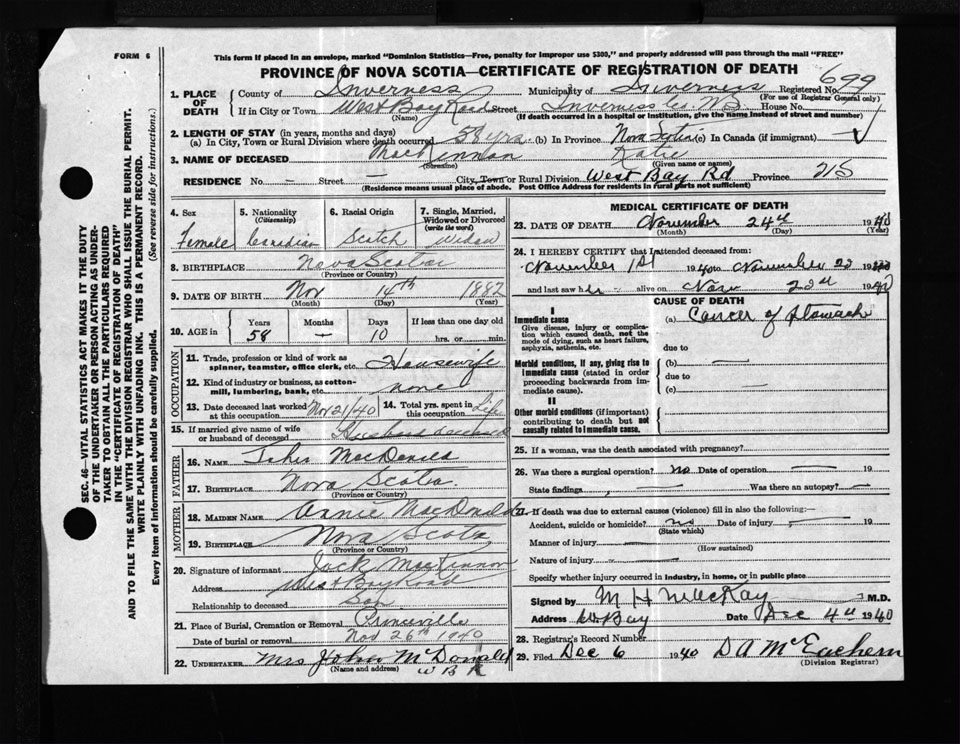 FORM 6
This form if placed in an envelope, marked "Dominion Statistics—Free, penalty for improper use $300," and properly addressed will pass through the mail "FREE"
PROVINCE OF NOVA SCOTIA—CERTIFICATE OF REGISTRATION OF DEATH
1. PLACE OF DEATH
County of Inverness Municipality of Inverness Registered No. 699
(For use of Registrar General only)
If in City or Town West Bay Road Street Inverness Co NS House No.
(Name) (If death occurred in a hospital or institution, give the name instead of street and number)
2. LENGTH OF STAY (in years, months and days)
(a) In City, Town or Rural Division where death occurred 58 yrs. (b) In Province Nova Scotia (c) In Canada (if immigrant)
3. NAME OF DECEASED MacKinnon Katie
(Surname) (Given name or names)
RESIDENCE No. — Street — City, Town or Rural Division West Bay Rd Province NS
(Residence means usual place of abode. Post Office Address for residents in rural parts not sufficient)
SEC. 46—VITAL STATISTICS ACT MAKES IT THE DUTY
OF THE UNDERTAKER OR PERSON ACTING AS UNDER-
TAKER TO OBTAIN ALL THE PARTICULARS REQUIRED
IN THE "CERTIFICATE OF REGISTRATION OF DEATH"
AND TO FILE THE SAME WITH THE DIVISION REGISTRAR WHO SHALL ISSUE THE BURIAL PERMIT.
WRITE PLAINLY WITH UNFADING INK. THIS IS A PERMANENT RECORD.
Every item of information should be carefully supplied. (See reverse side for instructions.)
4. Sex 5. Nationality (Citizenship) 6. Racial Origin 7. Single, Married, Widowed or Divorced (write the word)
Female Canadian Scotch Widow
8. BIRTHPLACE Nova Scotia
(Province or Country)
9. DATE OF BIRTH Nov 14th 1882
(Month) (Day) (Year)
10. AGE in Years Months Days If less than one day old
58 — 10 hrs. or min.
OCCUPATION
11. Trade, profession or kind of work as spinner, teamster, office clerk, etc. Housewife
12. Kind of industry or business, as cotton-mill, lumbering, bank, etc. none
13. Date deceased last worked at this occupation Nov 21/40 14. Total yrs. spent in this occupation Life
15. If married give name of wife or husband of deceased Husband deceased
FATHER
16. NAME John MacDonald
17. BIRTHPLACE Nova Scotia
(Province or Country)
MOTHER
18. MAIDEN NAME Annie MacDonald
19. BIRTHPLACE Nova Scotia
(Province or Country)
20. Signature of informant Jack MacKinnon
Address West Bay Road
Relationship to deceased Son
21. Place of Burial, Cremation or Removal Princeville
Date of burial or removal Nov 26th 1940
22. UNDERTAKER Mrs John McDonald
(Name and address) W B R
MEDICAL CERTIFICATE OF DEATH
23. DATE OF DEATH November 24th 1940
(Month) (Day) (Year)
24. I HEREBY CERTIFY that I attended deceased from:
November 1st 1940 to November 22
and last saw her alive on Nov 22nd 1940
CAUSE OF DEATH
I
Immediate cause
Give disease, injury or complication which caused death, not the mode of dying, such as heart failure, asphyxia, asthenia, etc.
(a) Cancer of Stomach
due to
Morbid conditions, if any, giving rise to immediate cause (stated in order proceeding backwards from immediate cause).
(b) —
due to
(c) —
II
Other morbid conditions (if important) contributing to death but not causally related to immediate cause.
25. If a woman, was the death associated with pregnancy?
26. Was there a surgical operation? no Date of operation — 19
State findings — Was there an autopsy? —
27. If death was due to external causes (violence) fill in also the following:—
Accident, suicide or homicide? no Date of injury — 19
(State which)
Manner of injury —
(How sustained)
Nature of injury —
Specify whether injury occurred in industry, in home, or in public place
Signed by M H McKay M.D.
Address W. Bay Date Dec 4th 1940
28. Registrar's Record Number
29. Filed Dec 6 1940 D A McEachern
(Division Registrar)